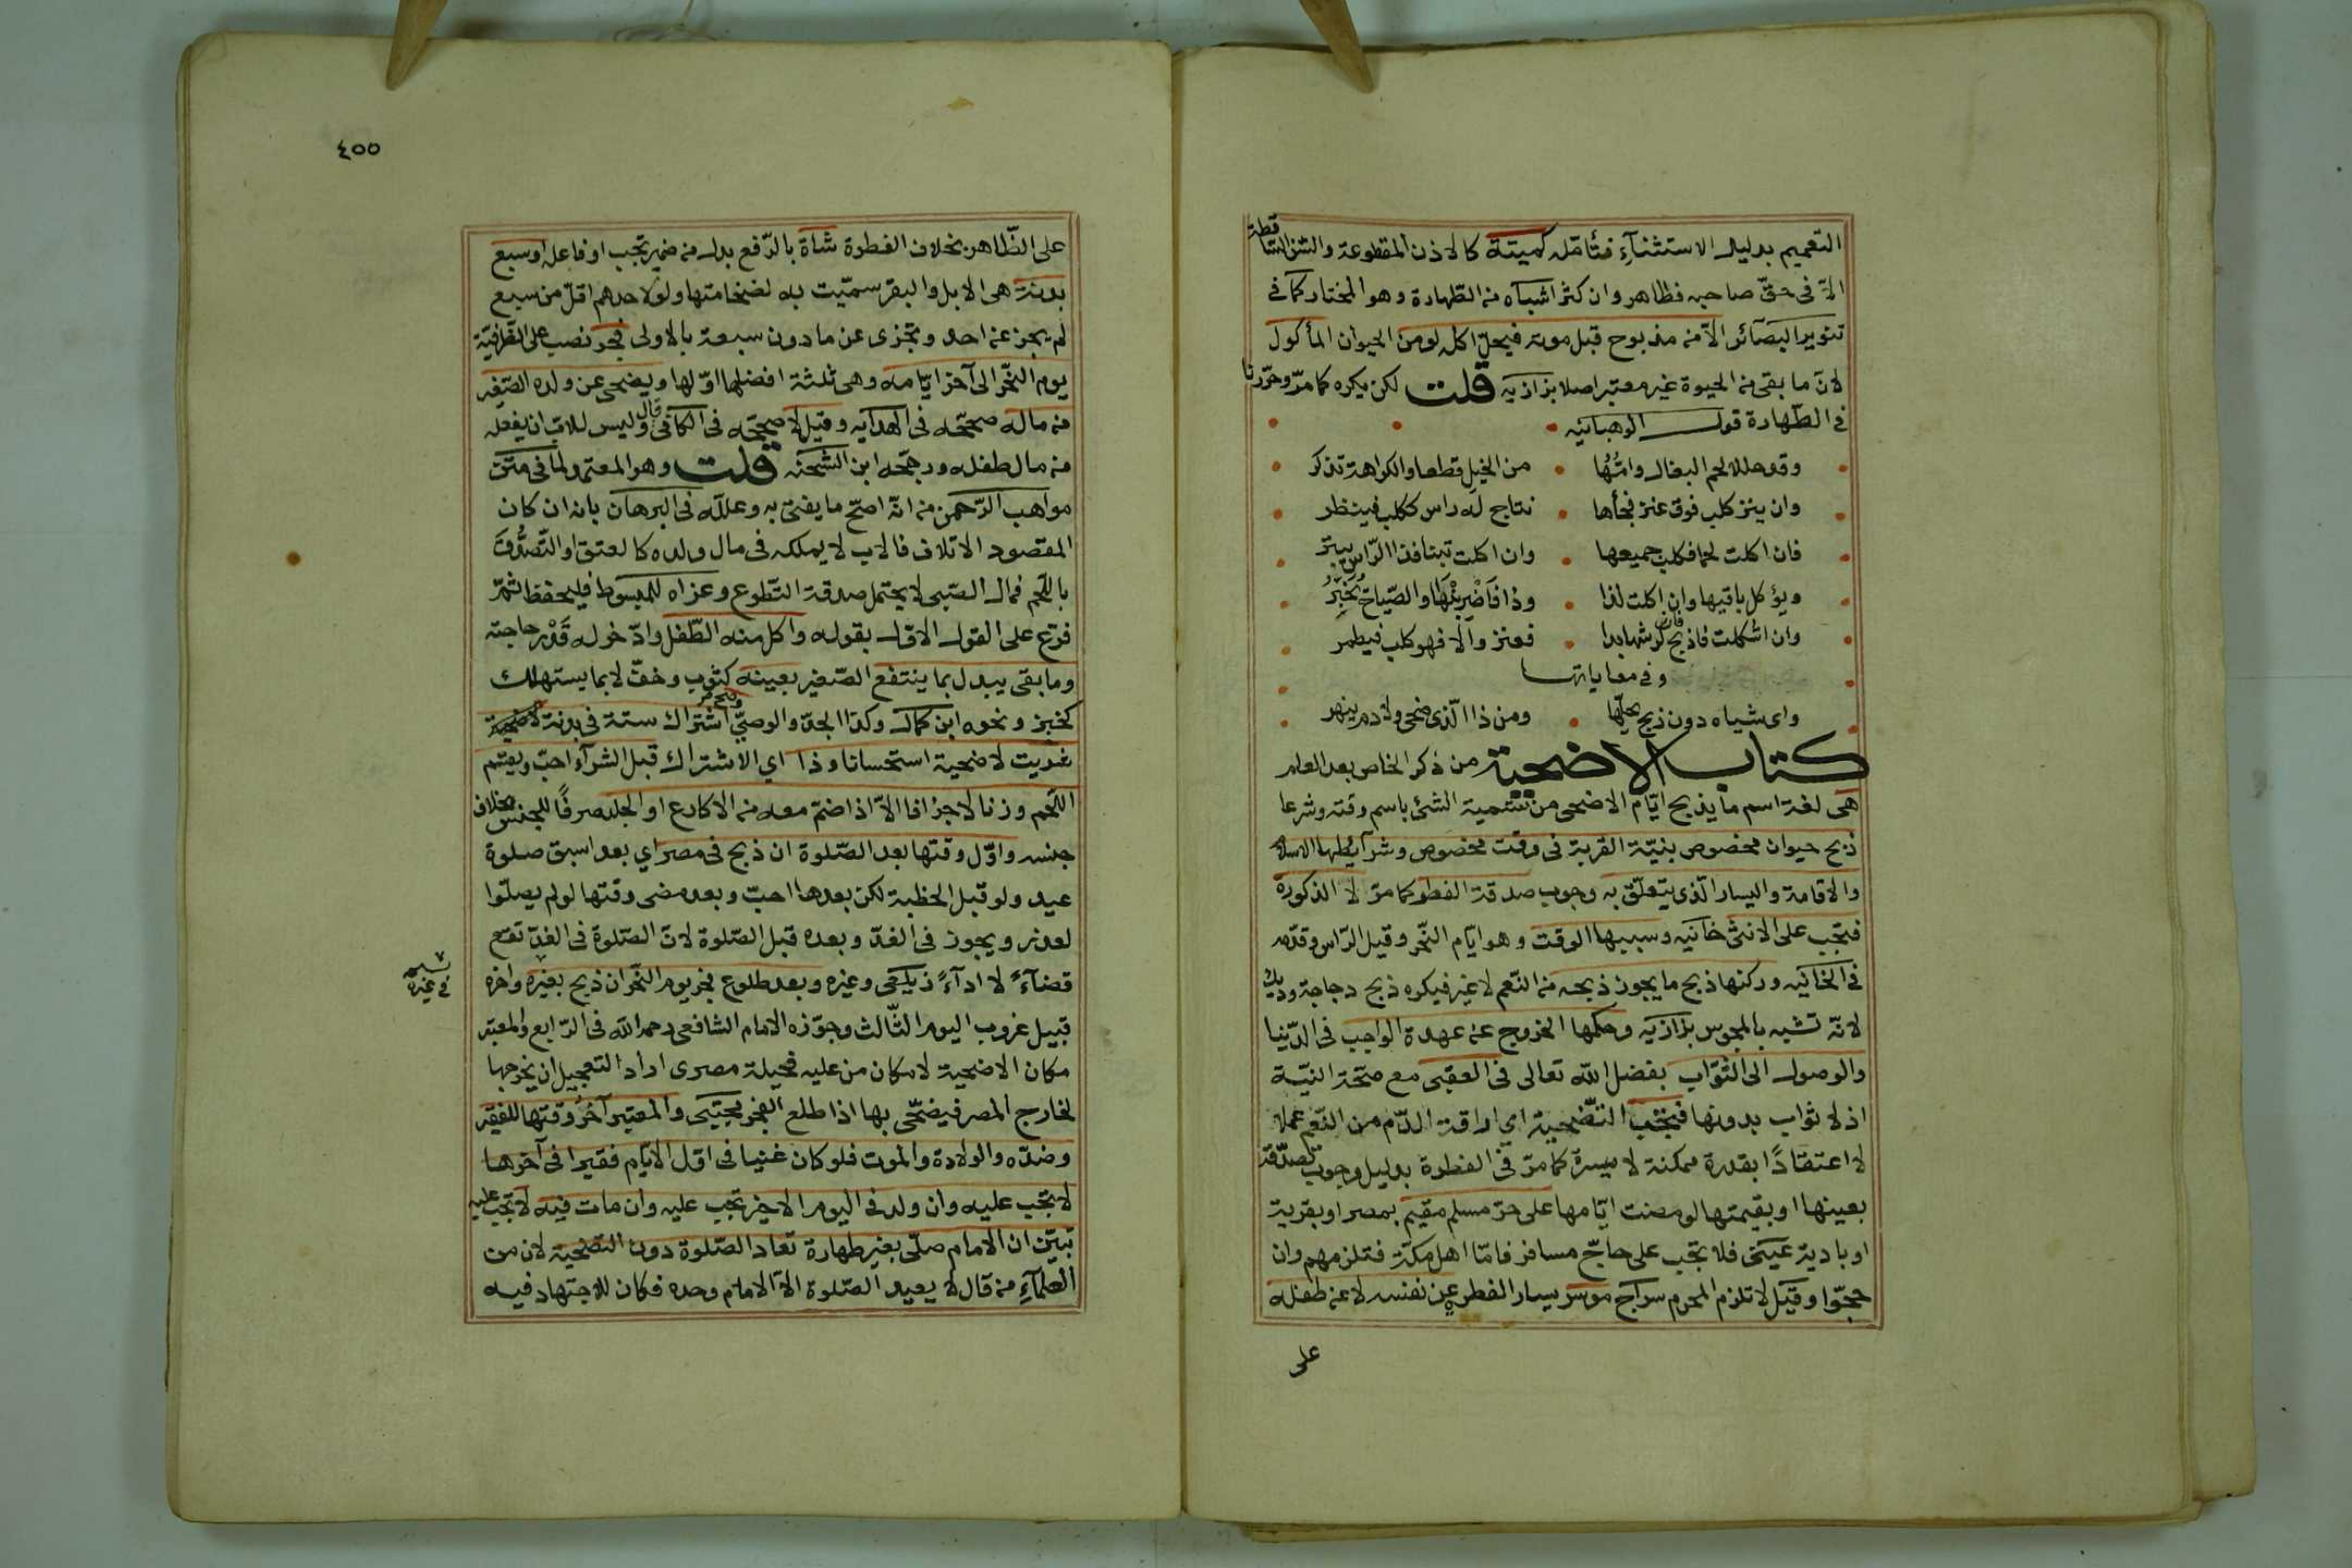 التعميم بدليل الاستثناء فتأمله كميتة كالاذن المقطوعة والسن الساقطة
الا فى حق صاحبه فظاهر وان كثر اشباه من الطهارة وهو المختار كما فى
تنوير البصائر الا من مذبوح قبل موته فيحل اكله لو من الحيوان المأكول
لان ما بقى من الحيوة غير معتبر اصلا بزازيه قلت لكن يكره كما مر وحررنا
فى الطهارة قول الوهبانيه
وقد حللا لحم البغال وامها من الخيل قطعا والكراهة تذكر
وان ينز كلب فوق عنز فجأها نتاج له راس ككلب فينظر
فان اكلت لحما فكلب جميعها وان اكلت تبنا فذا الراس يبتر
ويؤكل باقيها وان اكلت لذا وذا فاضربنها والصياح يخبر
وان اشكلت فاذبح فان كرشها بدا فعنز والا فهو كلب فيطمر
وفى معاياتها
واى شياه دون ذبح يحلها ومن ذا الذى ضحى ولا دم ينهر
كتاب الاضحية من ذكر الخاص بعد العام
هى لغة اسم ما يذبح ايام الاضحى من تسمية الشئ باسم وقته وشرعا
ذبح حيوان مخصوص بنية القربة فى وقت مخصوص وشرايطها الاسلام
والاقامة واليسار الذى يتعلق به وجوب صدقة الفطر كما مر لا الذكورة
فتجب على الانثى خانيه وسببها الوقت وهو ايام النحر وقيل الراس وقدمه
فى الخانيه وركنها ذبح ما يجوز ذبحه من النعم لا غير فيكره ذبح دجاجة وديك
لانه تشبه بالمجوس بزازيه وحكمها الخروج عن عهدة الواجب فى الدنيا
والوصول الى الثواب بفضل الله تعالى فى العقبى مع صحة النية
اذ لا ثواب بدونها فتجب التضحية اى اراقة الدم من النعم عملا
لا اعتقادا بقدرة ممكنة لا ميسرة كما مر فى الفطرة بدليل وجوب تصدقه
بعينها او بقيمتها لو مضت ايامها على حر مسلم مقيم بمصر او بقرية
او بادية عينى فلا تجب على حاج مسافر فاما اهل مكة فتلزمهم وان
حجوا وقيل لا تلزم المحرم سراج موسر يسار الفطرة عن نفسه لا عن طفله
على
٤٥٥
على الظاهر بخلاف الفطرة شاة بالرفع بدل من ضمير تجب او فاعله او سبع
بدنة هى الابل والبقر سميت به لضخامتها ولو لاحدهم اقل من سبع
لم يجز عن احد وتجزى عن ما دون سبعة بالاولى فجر نصب على الظرفية
يوم النحر الى آخر ايامه وهى ثلثة افضلها اولها ويضحى عن ولده الصغير
من ماله صححه فى الهدايه وقيل لا صححه فى الكافى قال وليس للاب ان يفعله
من مال طفله ورجحه ابن الشحنه قلت وهو المعتمد لما فى متن
مواهب الرحمن من انه اصح ما يفتى به وعلله فى البرهان بانه ان كان
المقصود الاتلاف فالاب لا يملكه فى مال ولده كالعتق او التصدق
باللحم فمال الصبى لا يحتمل صدقة التطوع وعزاه للمبسوط فليحفظ ثم
فرع على القول الاول بقوله واكل منه الطفل وادخر له قدر حاجته
وما بقى يبدل بما ينتفع الصغير بعينه كثوب وخف لا بما يستهلك
كخبز ونحوه ابن كمال وكذا الجد والوصى وصح اشتراك ستة فى بدنة لاضحية
شريت لاضحية استحسانا وذا اى الاشتراك قبل الشراء احب ويقسم
اللحم وزنا لا جزافا الا اذا ضم معه من الاكارع او الجلد صرفا للجنس بخلاف
جنسه واول وقتها بعد الصلوة ان ذبح فى مصر اى بعد اسبق صلوة
عيد ولو قبل الخطبة لكن بعدها احب وبعد مضى وقتها لو لم يصلوا
لعذر ويجوز فى الغد وبعده قبل الصلوة لان الصلوة فى الغد تقع
قضاء لا اداء زيلعى وغيره وبعد طلوع فجر يوم النحر ان ذبح بغيره واخره
فى غيره
قبيل غروب اليوم الثالث وجوزه الامام الشافعى رحمه الله فى الرابع والمعتبر
مكان الاضحية لا مكان من عليه فحيلة مصرى اراد التعجيل ان يخرجها
لخارج المصر فيضحى بها اذا طلع الفجر مجتبى والمعتبر آخر وقتها للفقير
وضده والولادة والموت فلو كان غنيا فى اول الايام فقيرا فى آخرها
لا تجب عليه وان ولد فى اليوم الاخير تجب عليه وان مات فيه لا تجب عليه
تبين ان الامام صلى بغير طهارة تعاد الصلوة دون التضحية لان من
العلماء من قال لا يعيد الصلوة الا الامام وحده فكان للاجتهاد فيه